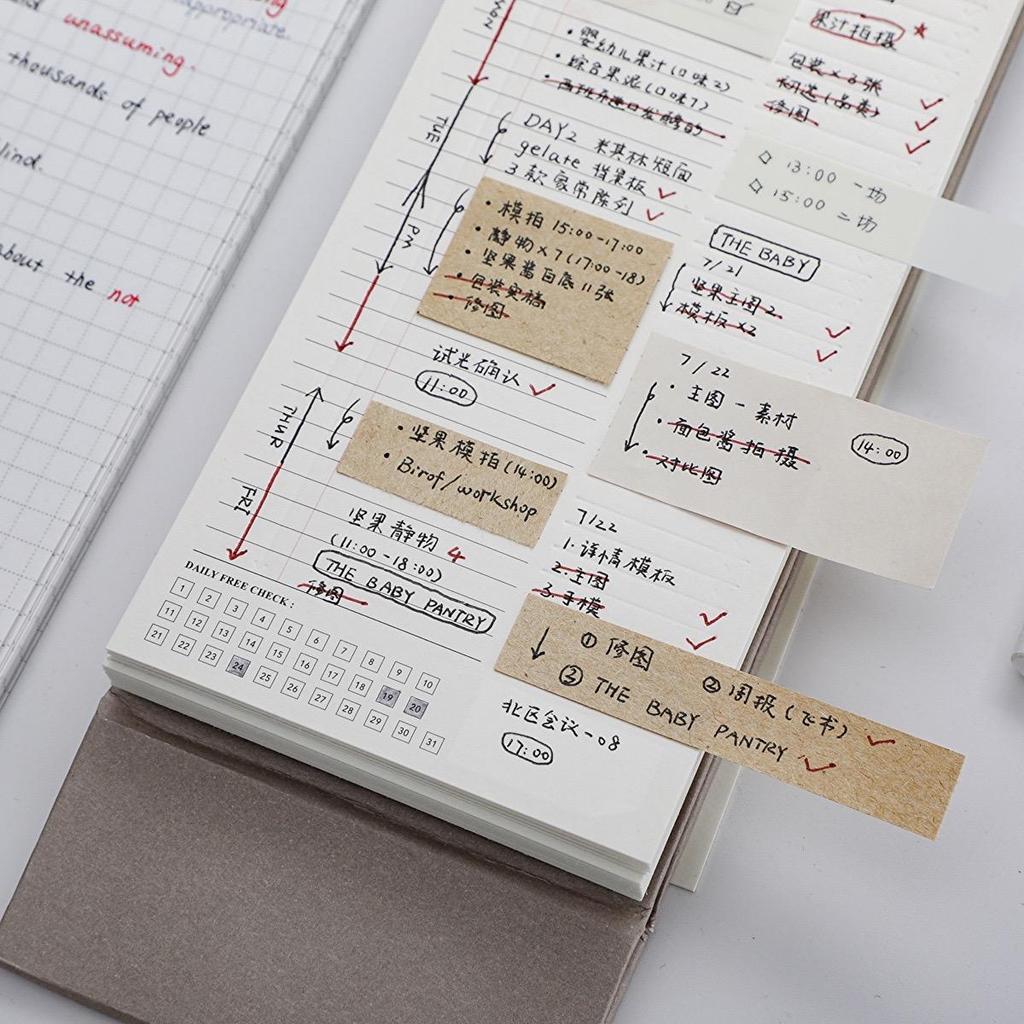 unassuming.
appropriate.
thousands of people
lind.
about the not
TUE
PM
THUR
FRI
• 婴幼儿果汁(口味2)
• 综合果泥(口味7)
DAY2 米其林短面
gelate 苹果板
3款家常陈列
• 模拍 15:00-17:00
• 静物×7(17:00-18)
• 坚果酱白底11张
• 包装实稿
• 修图
试光确认
11:00
• 坚果模拍(14:00)
• Birof/workshop
坚果静物 4
(11:00-18:00)
THE BABY PANTRY
修图
DAILY FREE CHECK:
1 2 3 4 5 6 7 8 9 10
11 12 13 14 15 16 17 18 19 20
21 22 23 24 25 26 27 28 29 30 31
果汁拍摄
包装×3张
初选(品类)
修图
13:00 一场
15:00 二场
THE BABY
7/21
坚果主图2
模板×2
7/22
• 主图-素材
• 面包酱拍摄
• 对比图
14:00
7/22
1. 详情模板
2. 主图
3. 手模
① 修图
② 周报(飞书)
③ THE BABY PANTRY
北区会议-08
17:00